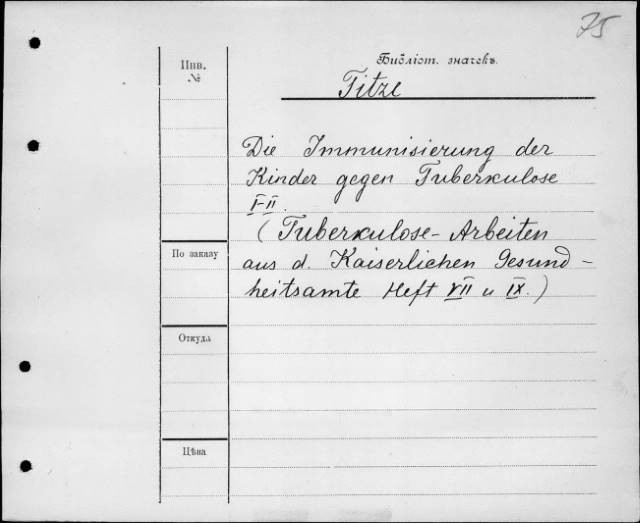 75
Инв.
№
Библіот. значекъ.
Titze
Die Immunisierung der
Kinder gegen Tuberkulose
I-II.
(Tuberkulose-Arbeiten
aus d. Kaiserlichen Gesund-
heitsamte Heft VII u IX.)
По заказу
Откуда
Цѣна